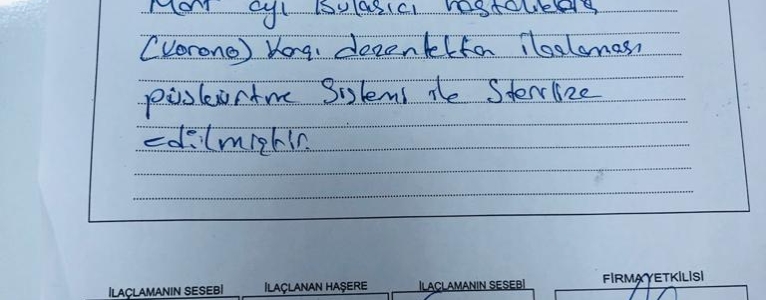 Mart ayı Bulaşıcı hastalıklara
(Korona) Karşı dezenfektan ilaçlaması
püskürtme Sistemi ile Sterilize
edilmiştir.
İLAÇLAMANIN SEBEBİ İLAÇLANAN HAŞERE İLAÇLAMANIN SEBEBİ FİRMA YETKİLİSİ